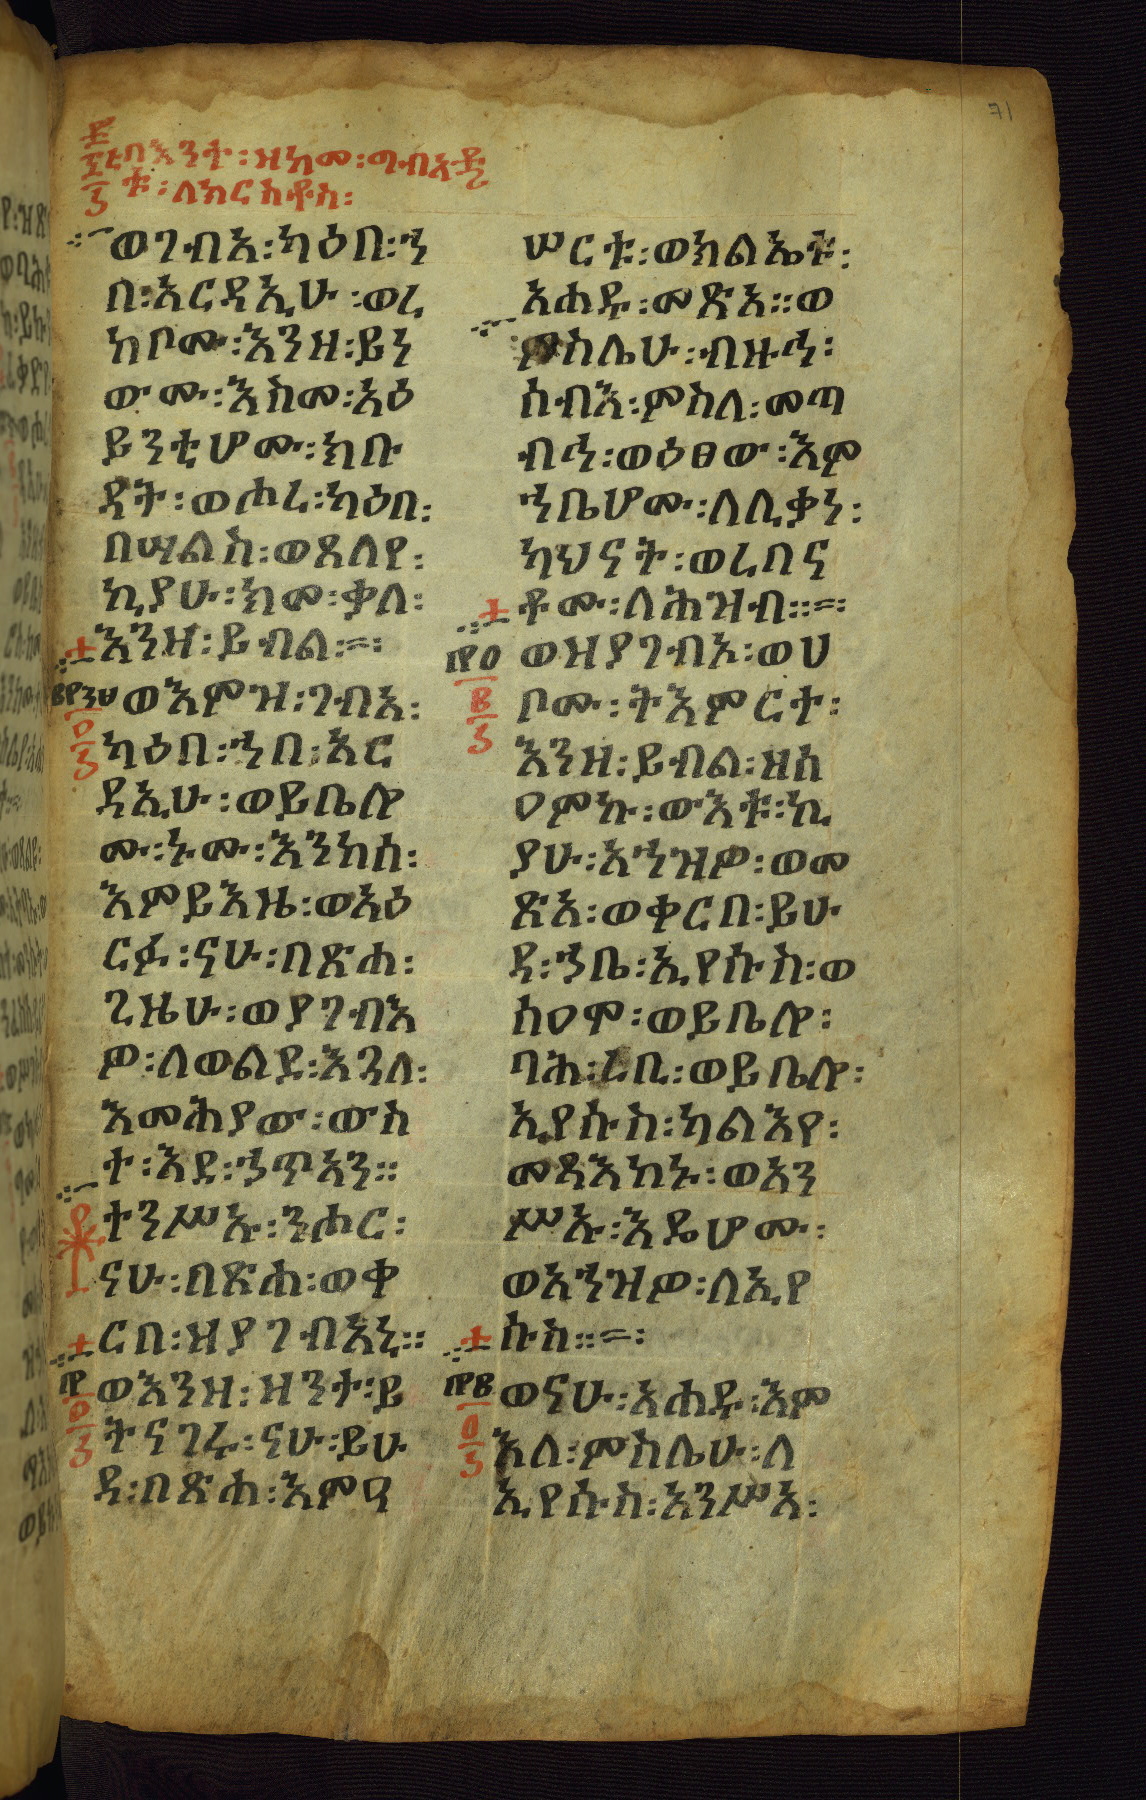 71
በእንተ፡ዝከመ፡ግብአቱ
ለክርስቶስ፡
ወገብአ፡ካዕበ፡ኀ
በ፡አርዳኢሁ፡ወረ
ከቦሙ፡እንዘ፡ይነ
ውሙ፡እስመ፡አዕ
ይንቲሆሙ፡ክቡ
ዳት፡ወሖረ፡ካዕበ፡
በሣልስ፡ወጸለየ፡
ኪያሁ፡ክመ፡ቃለ፡
እንዘ፡ይብል፡=፡
ወእምዝ፡ገብአ፡
ካዕበ፡ኀበ፡አር
ዳኢሁ፡ወይቤሎ
ሙ፡ኑሙ፡እንከሰ፡
እምይእዜ፡ወአዕ
ርፉ፡ናሁ፡በጽሐ፡
ጊዜሁ፡ወያገብእ
ዎ፡ለወልደ፡እጓለ፡
እመሕያው፡ውስ
ተ፡እደ፡ኃጥአን።
ተንሥኡ፡ንሖር፡
ናሁ፡በጽሐ፡ወቀ
ርበ፡ዝያገብአኒ።
ወእንዘ፡ዘንተ፡ይ
ትናገሩ፡ናሁ፡ይሁ
ዳ፡በጽሐ፡እምዐ
ሠርቱ፡ወክልኤቱ፡
አሐዱ፡መጽአ።ወ
ምስሌሁ፡ብዙኅ፡
ሰብእ፡ምስለ፡መጣ
ብሕ፡ወዕፀው፡እም
ኀቤሆሙ፡ለሊቃነ፡
ካህናት፡ወረበና
ቶሙ፡ለሕዝብ።=፡
ወዝያገብኦ፡ወሀ
ቦሙ፡ትእምርተ፡
እንዘ፡ይብል፡ዘስ
ዐምኩ፡ውእቱ፡ኪ
ያሁ፡አኀዝዎ፡ወመ
ጽአ፡ወቀርበ፡ይሁ
ዳ፡ኀቤ፡ኢየሱስ፡ወ
ሰዐሞ፡ወይቤሎ፡
ባሕ፡ረቢ፡ወይቤሎ፡
ኢየሱስ፡ካልእየ፡
መጻእከኑ፡ወአን
ሥኡ፡እዴሆሙ፡
ወአኀዝዎ፡ለኢየ
ሱስ።=፡
ወናሁ፡አሐዱ፡እም
እለ፡ምስሌሁ፡ለ
ኢየሱስ፡አንሥአ፡